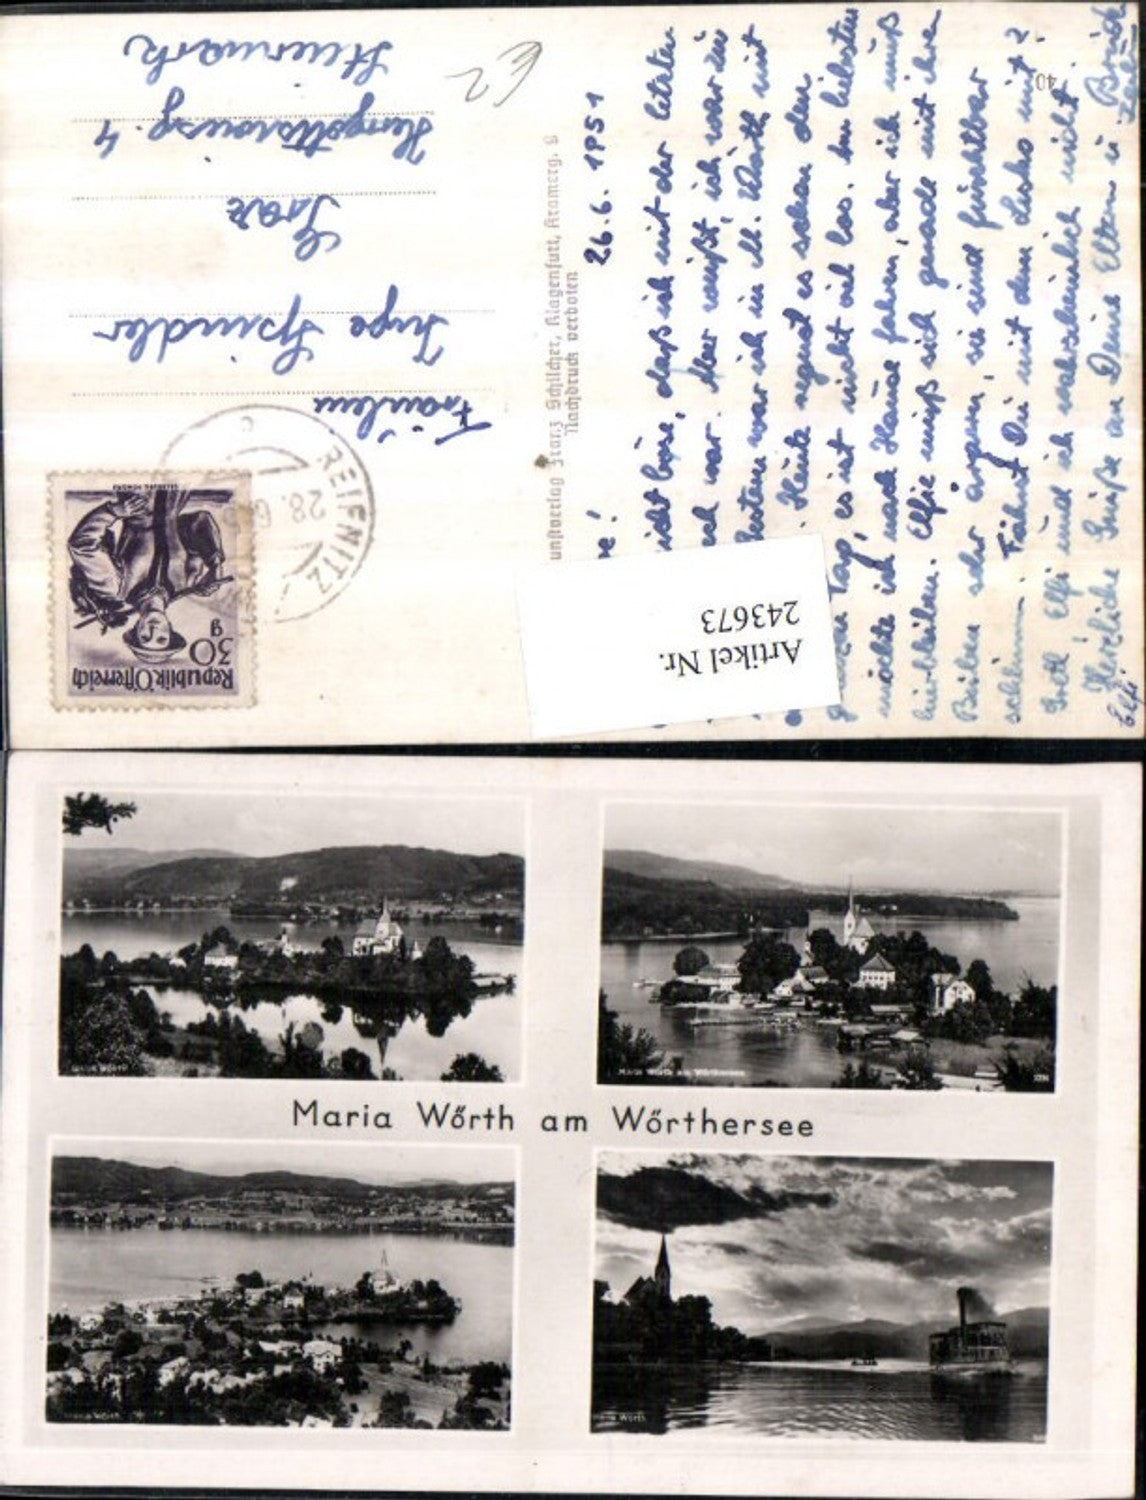 26.6.1951
nicht böse, daß ich mit der letzten
war. Aber weißt, ich war in
war ich in M. Wörth mit
Heute regnet es schon den
Tag, es ist nicht viel los. Am liebsten
möchte ich nach Hause fahren, aber ich muß
hierbleiben. Elfie muß sich gerade mit ihren
sehr ärgern, sie sind furchtbar
schlimm. Fährst Du mit dem mit?
Gretl Elfi und ich wahrscheinlich nicht.
Herzliche Grüße an Deine Eltern u.
Elfi
40
Kunstverlag Franz Schilcher, Klagenfurt, Kramerg. 6
Nachdruck verboten
Fräulein
Inge Spindler
Graz
4
Steiermark
€2
REIFNITZ
28.6.
Republik Österreich
30
g
SALZBURG PONGAU
Artikel Nr.
243673
Maria Wörth
Maria Wörth am Wörthersee
Maria Wörth am Wörthersee
Maria Wörth
Maria Wörth